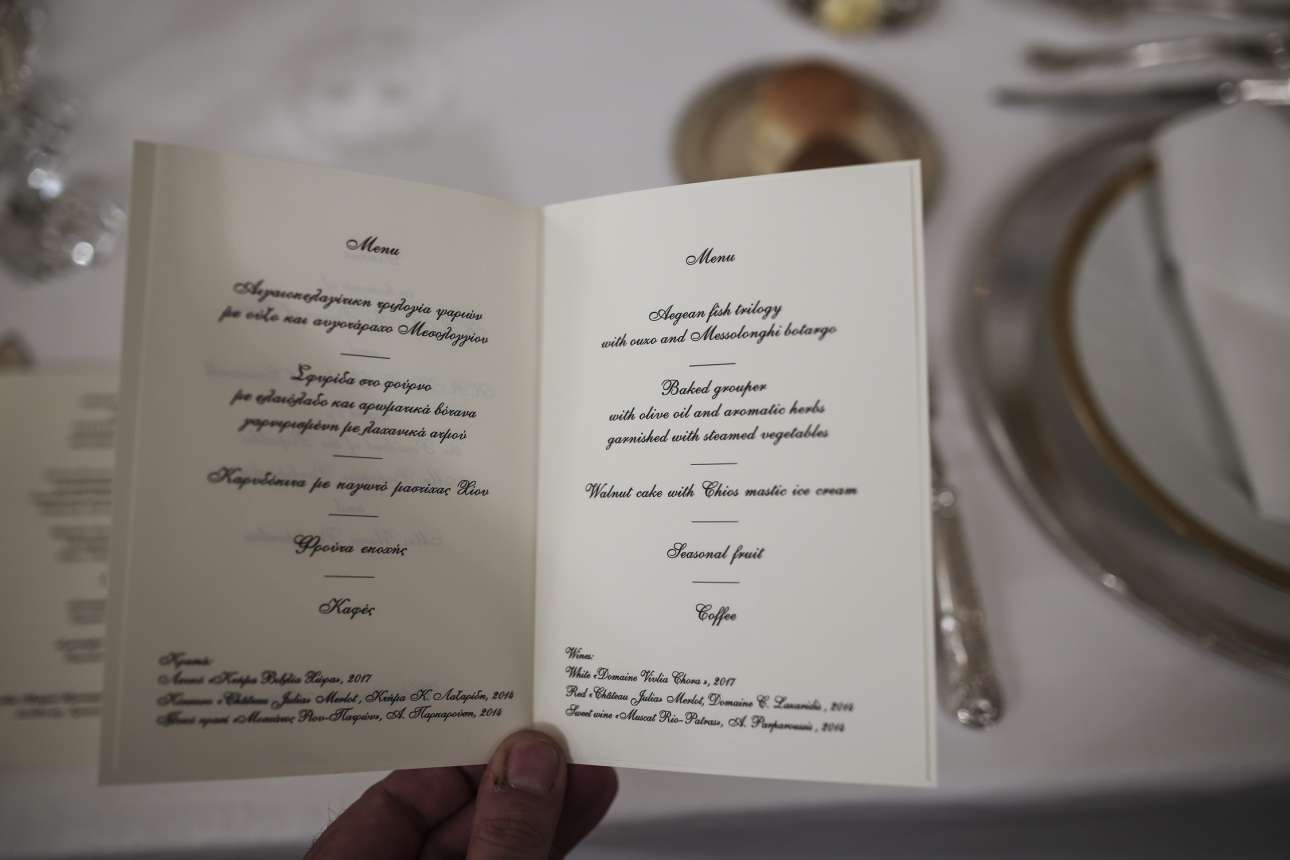 Menu
Αιγαιοπελαγίτικη τριλογία ψαριών
με ούζο και αυγοτάραχο Μεσολογγίου
Σφυρίδα στο φούρνο
με ελαιόλαδο και αρωματικά βότανα
γαρνιρισμένη με λαχανικά ατμού
Καρυδόπιτα με παγωτό μαστίχας Χίου
Φρούτα εποχής
Καφές
Κρασιά:
Λευκό «Κτήμα Βιβλία Χώρα», 2017
Κόκκινο «Château Julia» Merlot, Κτήμα Κ. Λαζαρίδη, 2014
Γλυκό κρασί «Μοσχάτος Ρίου-Πατρών», Α. Παρπαρούση, 2014
Menu
Aegean fish trilogy
with ouzo and Messolonghi botargo
Baked grouper
with olive oil and aromatic herbs
garnished with steamed vegetables
Walnut cake with Chios mastic ice cream
Seasonal fruit
Coffee
Wines:
White «Domaine Vivlia Chora », 2017
Red «Château Julia» Merlot, Domaine C. Lazaridis , 2014
Sweet wine «Muscat Rio-Patras», A. Parparoussis , 2014